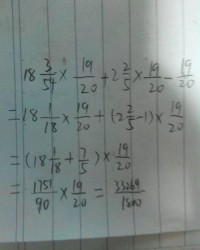 18 3/54 × 19/20 + 2 2/5 × 19/20 - 19/20
= 18 1/18 × 19/20 + (2 2/5 - 1) × 19/20
= (18 1/18 + 7/5) × 19/20
= 1751/90 × 19/20 = 33269/1800